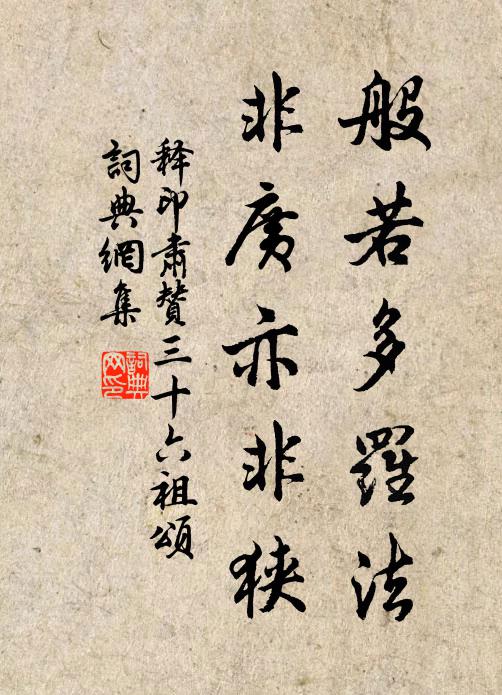 般若多羅法
非廣亦非狹
释印肅贊三十六祖頌
詞典網集
詞典網印